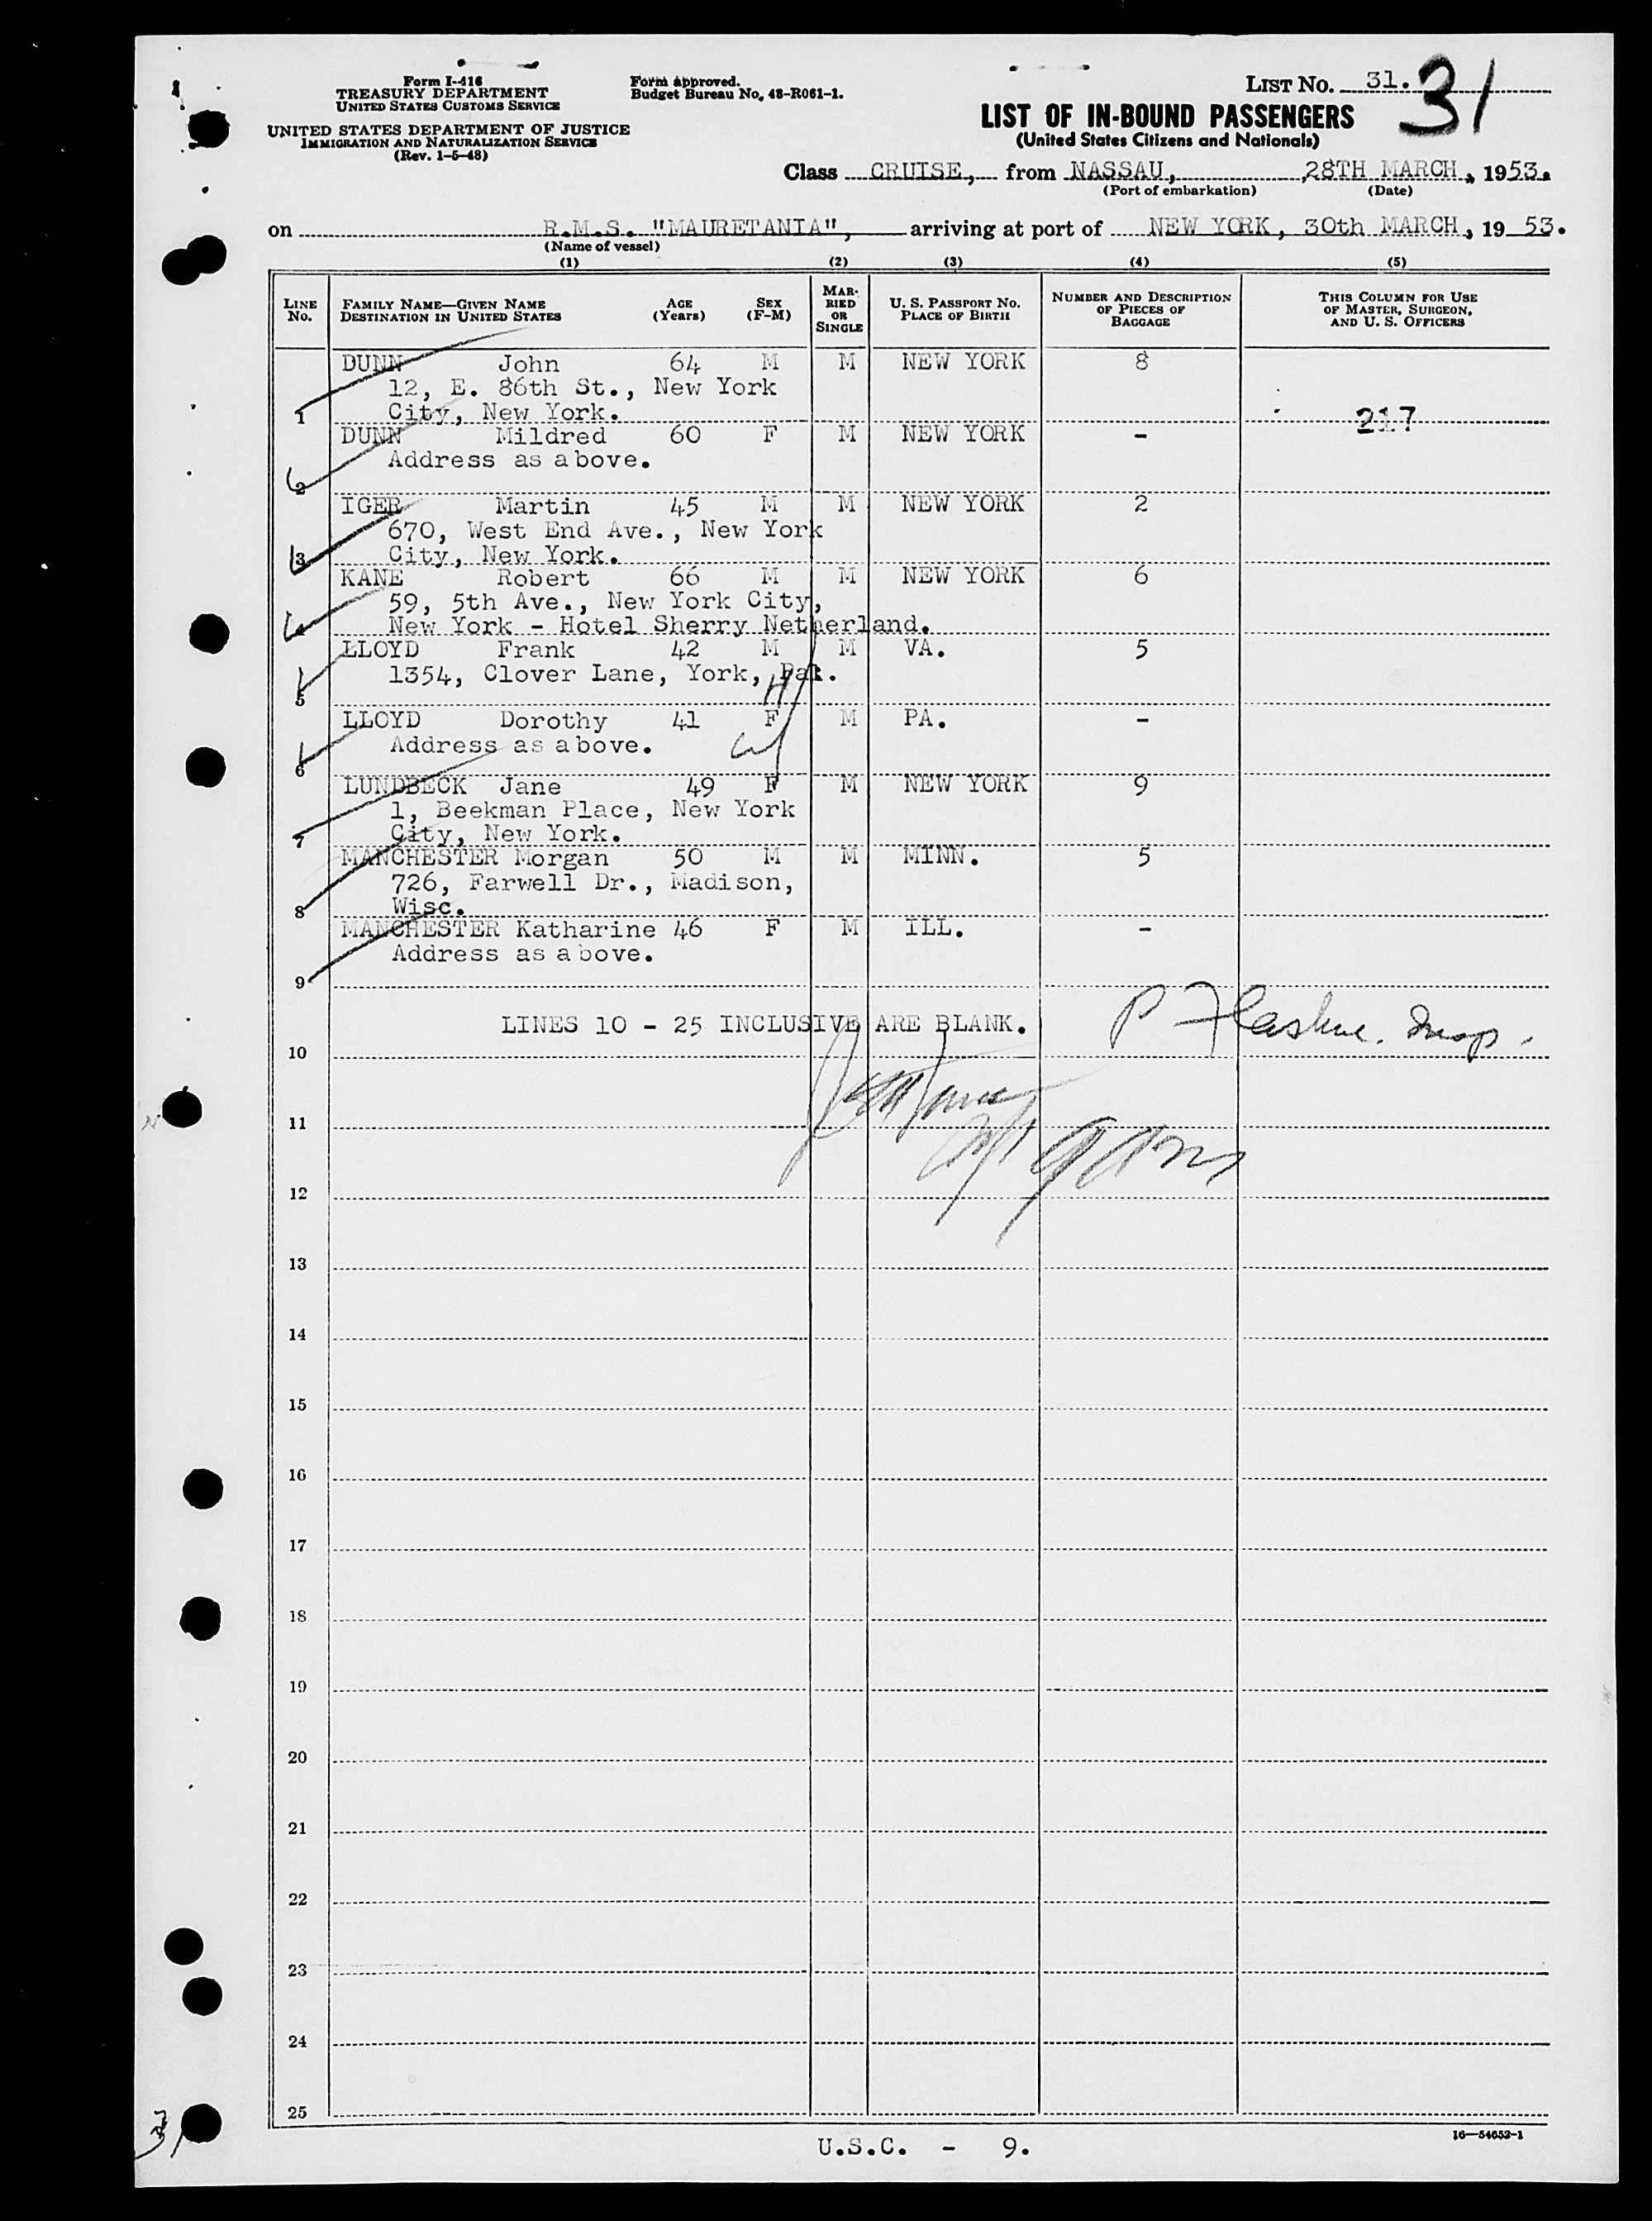 Form I-416
TREASURY DEPARTMENT
UNITED STATES CUSTOMS SERVICE
UNITED STATES DEPARTMENT OF JUSTICE
IMMIGRATION AND NATURALIZATION SERVICE
(Rev. 1-5-48)
Form approved.
Budget Bureau No. 43-R061-1.
LIST No. 31. 31
LIST OF IN-BOUND PASSENGERS
(United States Citizens and Nationals)
Class CRUISE, from NASSAU, 28TH MARCH, 1953.
(Port of embarkation) (Date)
on R.M.S. "MAURETANIA", arriving at port of NEW YORK, 30th MARCH, 19 53.
(Name of vessel)
(1) (2) (3) (4) (5)
LINE No. FAMILY NAME—GIVEN NAME DESTINATION IN UNITED STATES AGE (Years) SEX (F-M) MARRIED OR SINGLE U. S. PASSPORT NO. PLACE OF BIRTH NUMBER AND DESCRIPTION OF PIECES OF BAGGAGE THIS COLUMN FOR USE OF MASTER, SURGEON, AND U. S. OFFICERS
DUNN John 64 M M NEW YORK 8
12, E. 86th St., New York
1 City, New York. 217
DUNN Mildred 60 F M NEW YORK -
Address as above.
2
IGER Martin 45 M M NEW YORK 2
670, West End Ave., New York
3 City, New York.
KANE Robert 66 M M NEW YORK 6
59, 5th Ave., New York City,
4 New York - Hotel Sherry Netherland.
LLOYD Frank 42 M M VA. 5
1354, Clover Lane, York, Pa.
5
LLOYD Dorothy 41 F M PA. -
Address as above.
6
LUNDBECK Jane 49 F M NEW YORK 9
1, Beekman Place, New York
7 City, New York.
MANCHESTER Morgan 50 M M MINN. 5
726, Farwell Dr., Madison,
8 Wisc.
MANCHESTER Katharine 46 F M ILL. -
Address as above.
9
LINES 10 - 25 INCLUSIVE ARE BLANK.
10
11
12
13
14
15
16
17
18
19
20
21
22
23
24
25
16—54652-1
U.S.C. - 9.